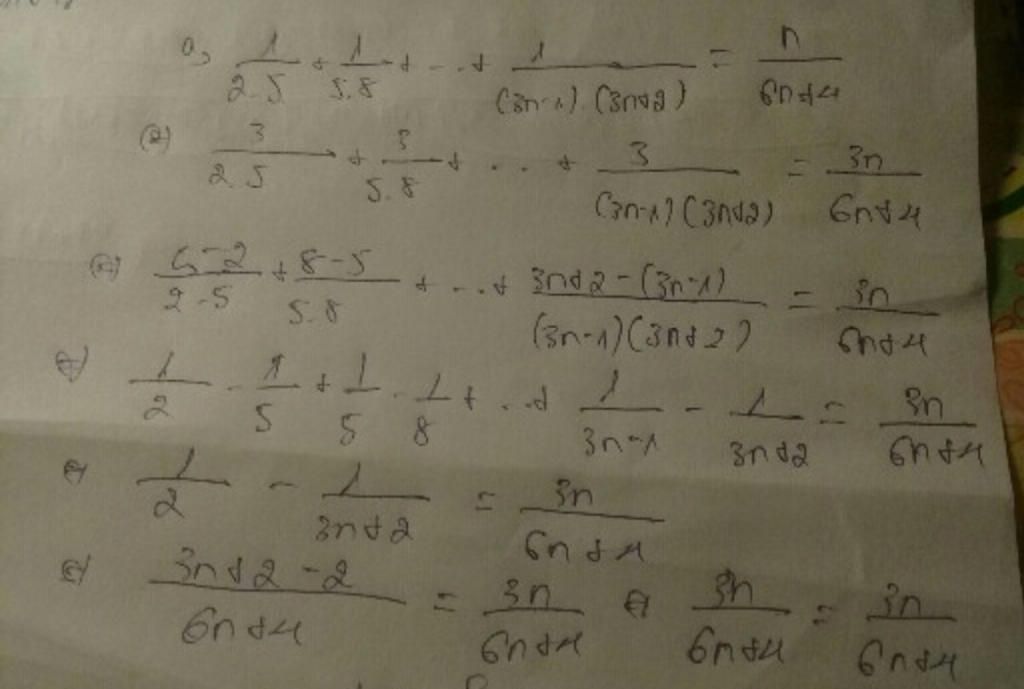 a, 1/2.5 + 1/5.8 + ... + 1/(3n-1).(3n+2) = n/6n+4
(=) 3/2.5 + 3/5.8 + ... + 3/(3n-1)(3n+2) = 3n/6n+4
(=) 5-2/2.5 + 8-5/5.8 + ... + 3n+2-(3n-1)/(3n-1)(3n+2) = 3n/6n+4
(=) 1/2 - 1/5 + 1/5 - 1/8 + ... + 1/3n-1 - 1/3n+2 = 3n/6n+4
(=) 1/2 - 1/3n+2 = 3n/6n+4
(=) 3n+2-2/6n+4 = 3n/6n+4 (=) 3n/6n+4 = 3n/6n+4